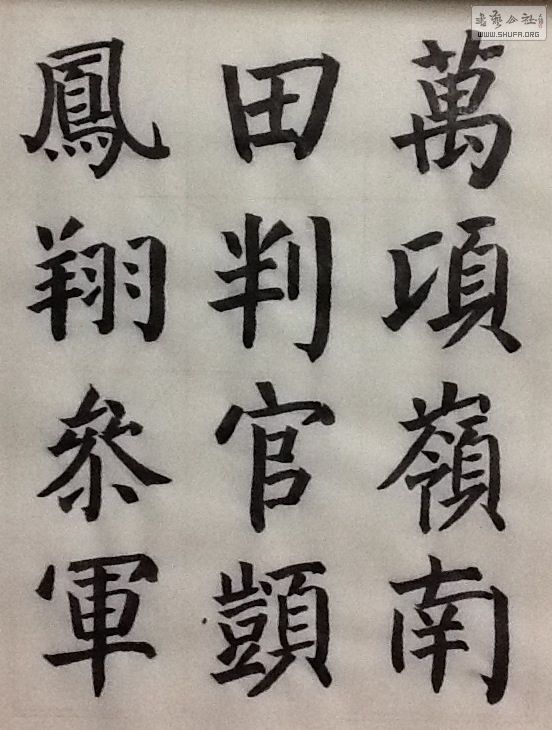 萬項嶺南
田判官顗
鳳翔叅軍
书艺公社
WWW.SHUFA.ORG